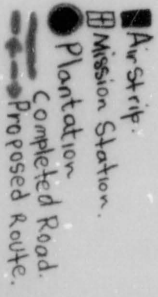 Airstrip.
Mission Station.
Plantation
Completed Road.
Proposed Route.